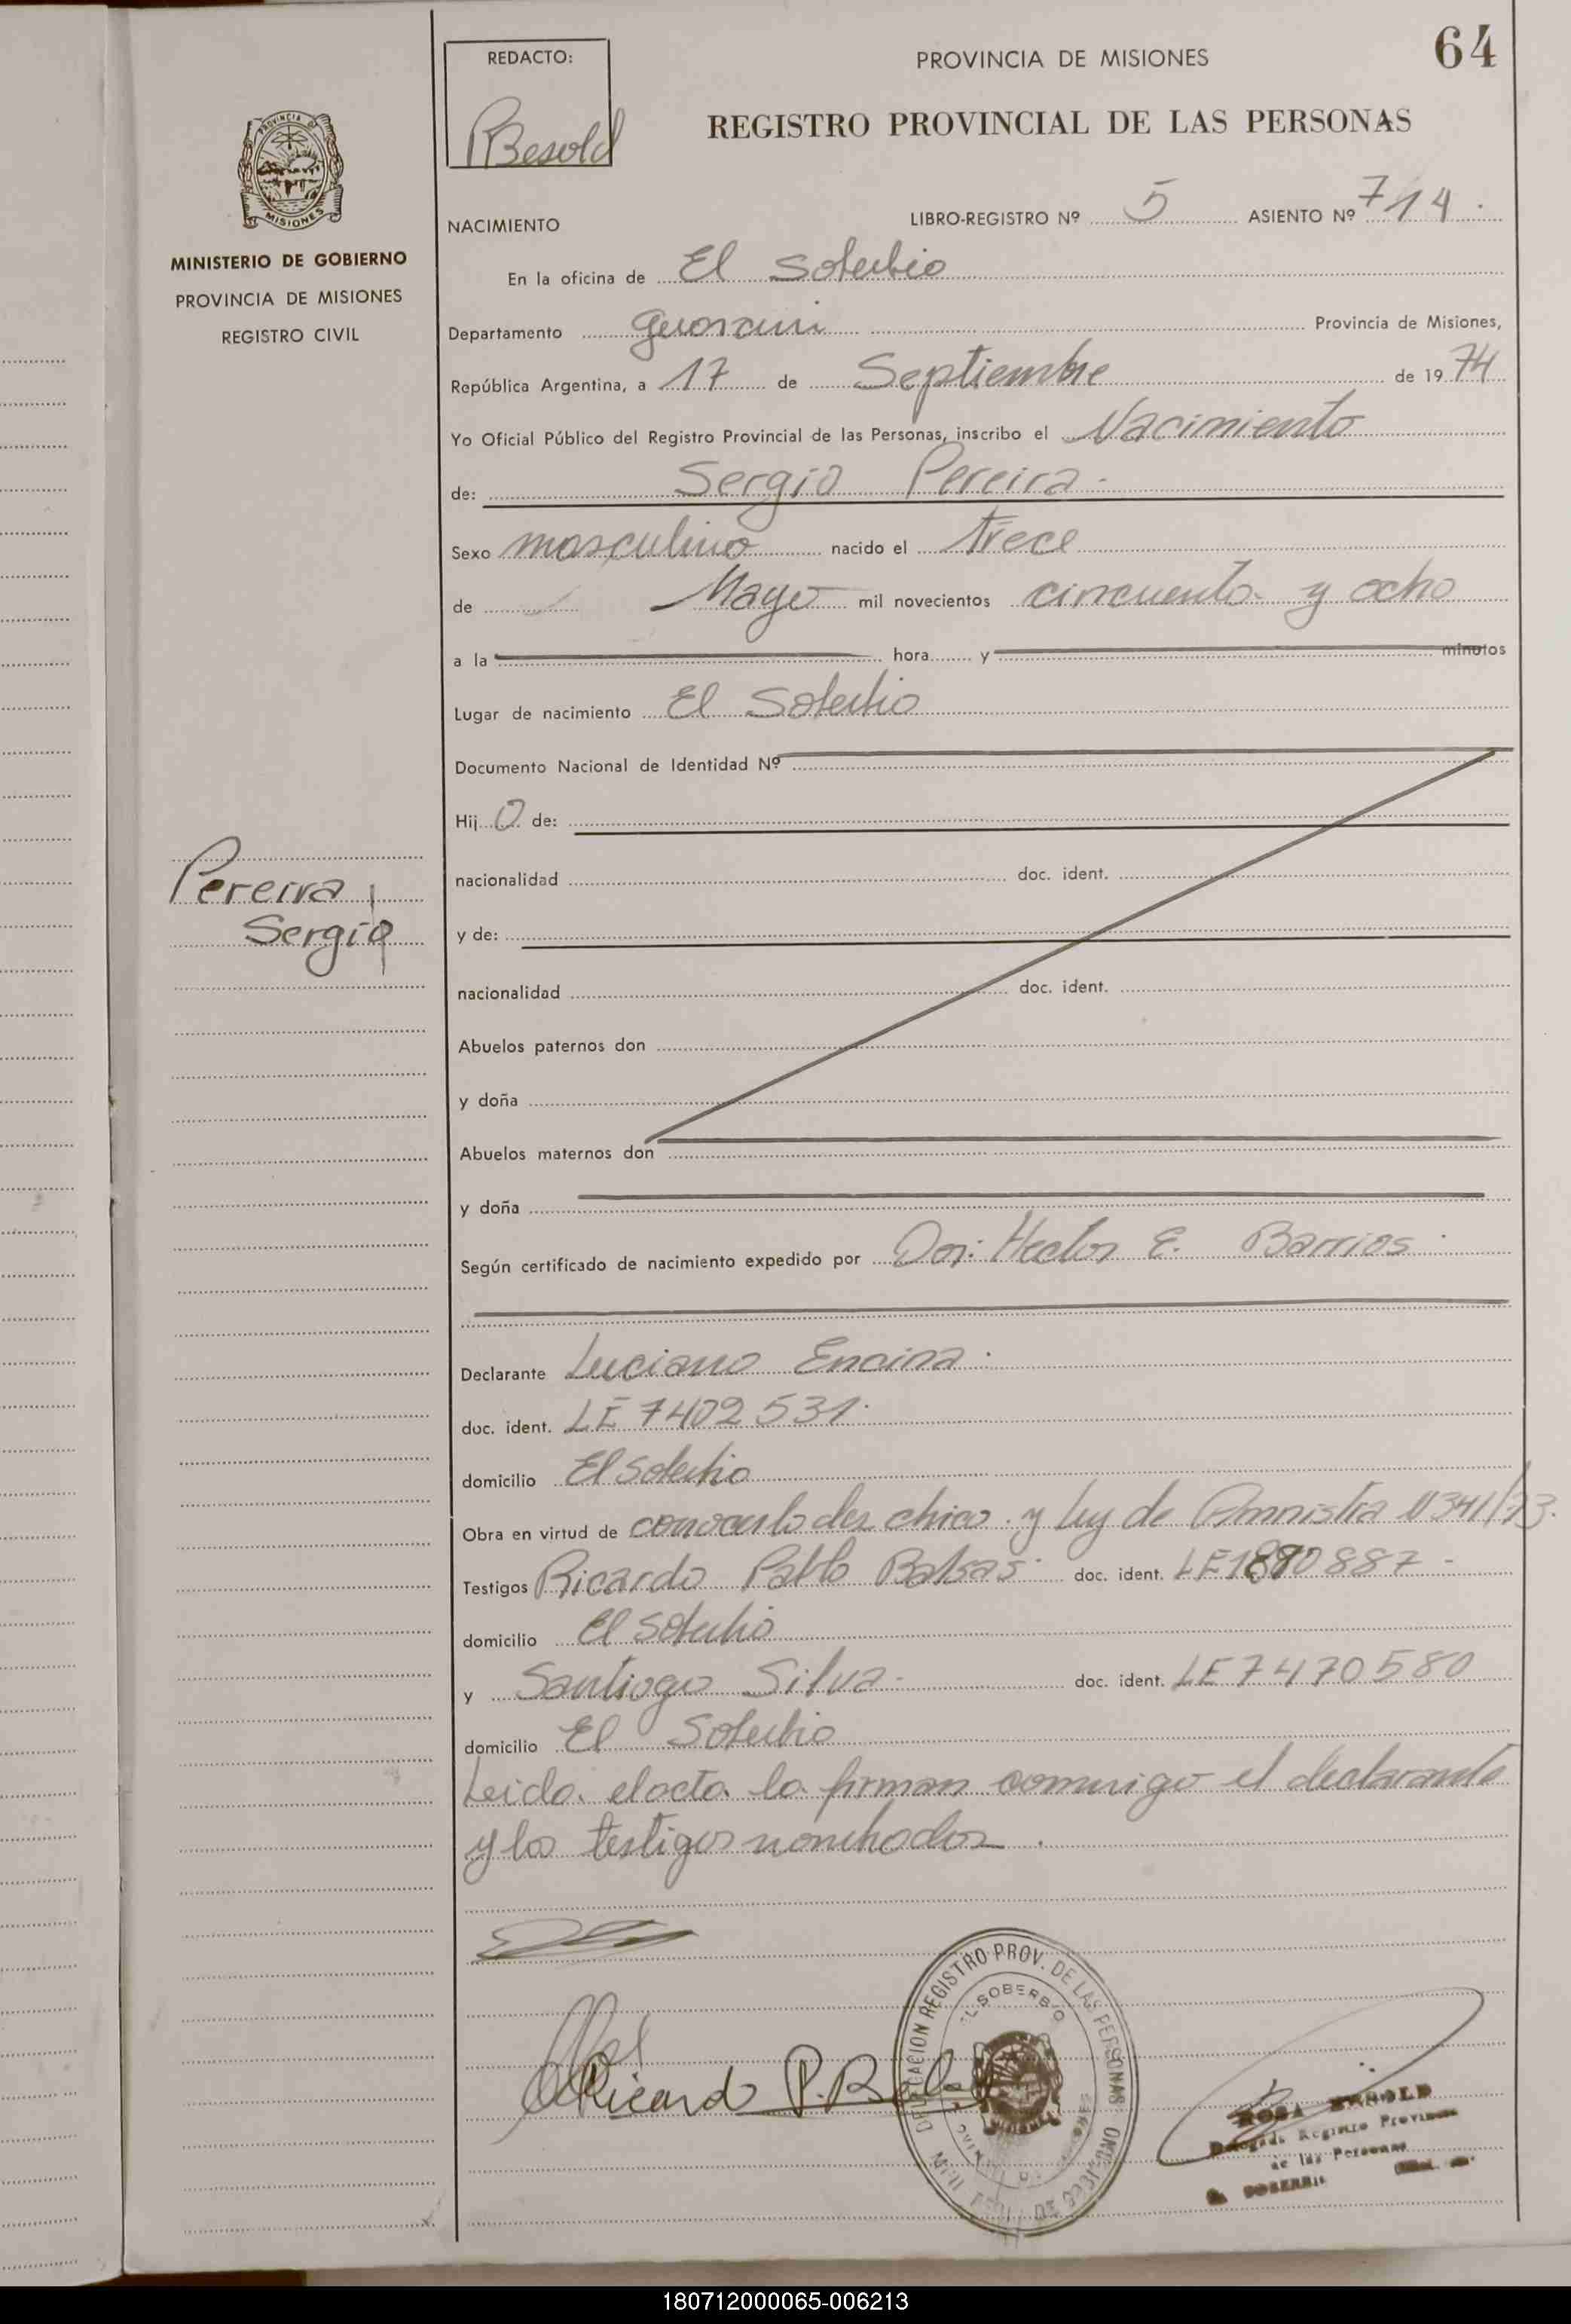 64
REDACTO:
RBesold
PROVINCIA DE MISIONES
REGISTRO PROVINCIAL DE LAS PERSONAS
PROVINCIA DE
MISIONES
MINISTERIO DE GOBIERNO
PROVINCIA DE MISIONES
REGISTRO CIVIL
NACIMIENTO LIBRO-REGISTRO Nº 5 ASIENTO Nº 714.
En la oficina de El Soberbio
Departamento Guarani Provincia de Misiones,
República Argentina, a 17 de Septiembre de 1974
Yo Oficial Público del Registro Provincial de las Personas, inscribo el Nacimiento
de: Sergio Pereira.
Sexo masculino nacido el trece
de Mayo mil novecientos cincuenta y ocho
a la hora y minutos
Lugar de nacimiento El Soberbio
Documento Nacional de Identidad Nº
Hij O de:
nacionalidad doc. ident.
Pereira,
Sergio
y de:
nacionalidad doc. ident.
Abuelos paternos don
y doña
Abuelos maternos don
y doña
Según certificado de nacimiento expedido por Dor: Hector E. Barrios.
Declarante Luciano Encina.
doc. ident. LE 7402531.
domicilio El Soberbio
Obra en virtud de conocerlo des chico. y Ley de Amnistia 1341/73.
Testigos Ricardo Pablo Balsas. doc. ident. LE1890887-
domicilio El Soberbio
y Santiago Silva- doc. ident. LE7470580
domicilio El Soberbio
Leida el acta la firman conmigo el declarante
y los testigos nombrados.
Ricardo P. Bal
REGISTRO PROV. DE LAS PERSONAS
EL SOBERBIO
ROSA BESOLD
Delegada Registro Provincial
de las Personas
EL SOBERBIO
180712000065-006213